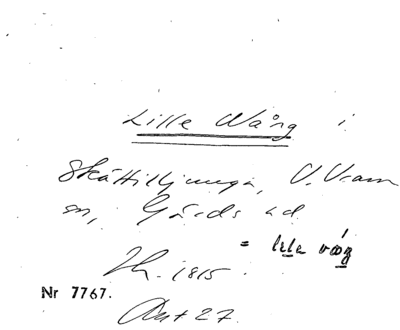 Lille Wång i
Skättilljunga, V. Vram
sn, Gärds hd.
= lilla våŋ
Th. 1815.
Nr 7767.
Akt 27.